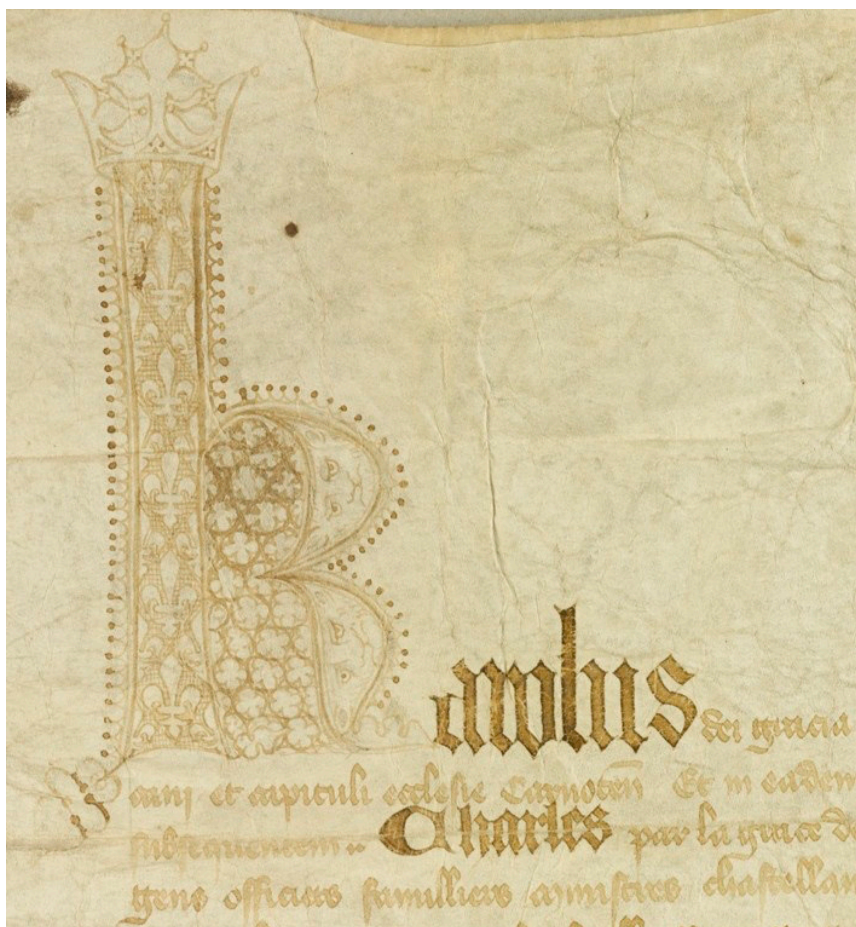 Karolus dei gracia
cani et capituli ecclesie Carnoten Et in eadem
subsequentem Charles par la grace de
gens officiers familliers ministres chastellan